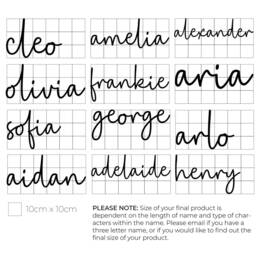 cleo amelia alexander
olivia frankie aria
sofia george arlo
aidan adelaide henry
10cm x 10cm
PLEASE NOTE: Size of your final product is
dependent on the length of name and type of char-
acters within the name. Please email if you have a
three letter name, or if you would like to find out the
final size of your product.